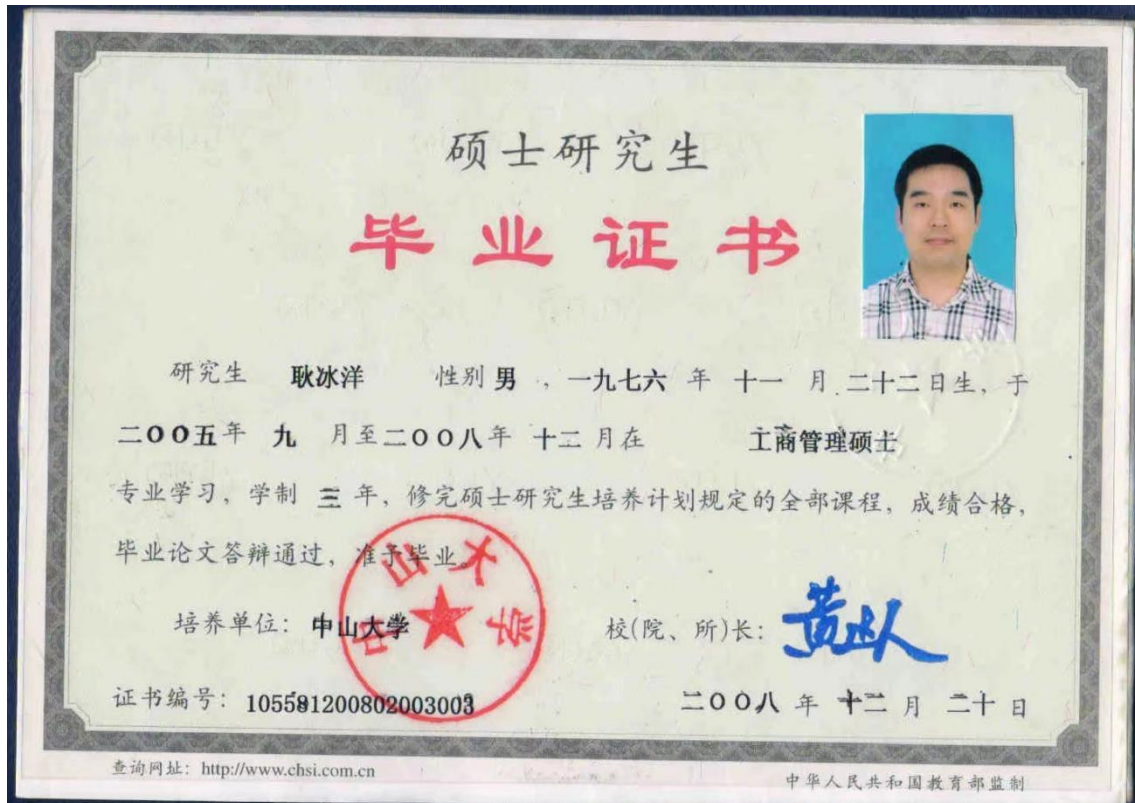 硕士研究生
毕业证书
研究生 耿冰洋 性别 男 ，一九七六 年 十一 月 二十二日生，于
二〇〇五年 九 月至二〇〇八年 十二 月在 工商管理硕士
专业学习，学制 三 年，修完硕士研究生培养计划规定的全部课程，成绩合格，
毕业论文答辩通过，准予毕业。
中山大学
培养单位：中山大学 校(院、所)长：黄达人
证书编号：105581200802003003 二〇〇八 年 十二 月 二十 日
查询网址：http://www.chsi.com.cn 中华人民共和国教育部监制